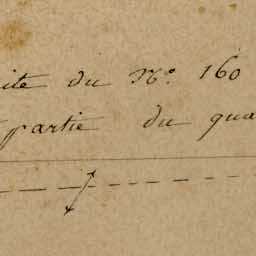 ite du N.o 160
partie du qua